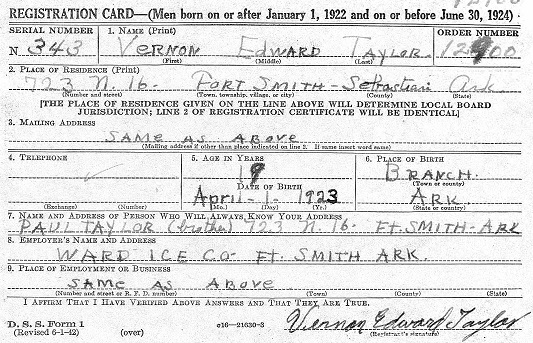 REGISTRATION CARD—(Men born on or after January 1, 1922 and on or before June 30, 1924)
SERIAL NUMBER 1. NAME (Print) ORDER NUMBER
N 343 VERNON EDWARD TAYLOR 12900
(First) (Middle) (Last)
2. PLACE OF RESIDENCE (Print)
723 N. 16- FORT SMITH - Sebastian Ark
(Number and street) (Town, township, village, or city) (County) (State)
[THE PLACE OF RESIDENCE GIVEN ON THE LINE ABOVE WILL DETERMINE LOCAL BOARD
JURISDICTION; LINE 2 OF REGISTRATION CERTIFICATE WILL BE IDENTICAL]
3. MAILING ADDRESS
SAME AS ABOVE
(Mailing address if other than place indicated on line 2. If same insert word same)
4. TELEPHONE 5. AGE IN YEARS 6. PLACE OF BIRTH
19 BRANCH.
DATE OF BIRTH (Town or county)
April - 1 - 1923 ARK
(Exchange) (Number) (Mo.) (Day) (Yr.) (State or country)
7. NAME AND ADDRESS OF PERSON WHO WILL ALWAYS KNOW YOUR ADDRESS
PAUL TAYLOR (brother) 723 N. 16- FT. SMITH - ARK
8. EMPLOYER'S NAME AND ADDRESS
WARD ICE CO- FT. SMITH ARK.
9. PLACE OF EMPLOYMENT OR BUSINESS
SAME AS ABOVE
(Number and street or R. F. D. number) (Town) (County) (State)
I AFFIRM THAT I HAVE VERIFIED ABOVE ANSWERS AND THAT THEY ARE TRUE.
D. S. S. Form 1 Vernon Edward Taylor
(Revised 6-1-42) (over) c16—21630-3 (Registrant's signature)